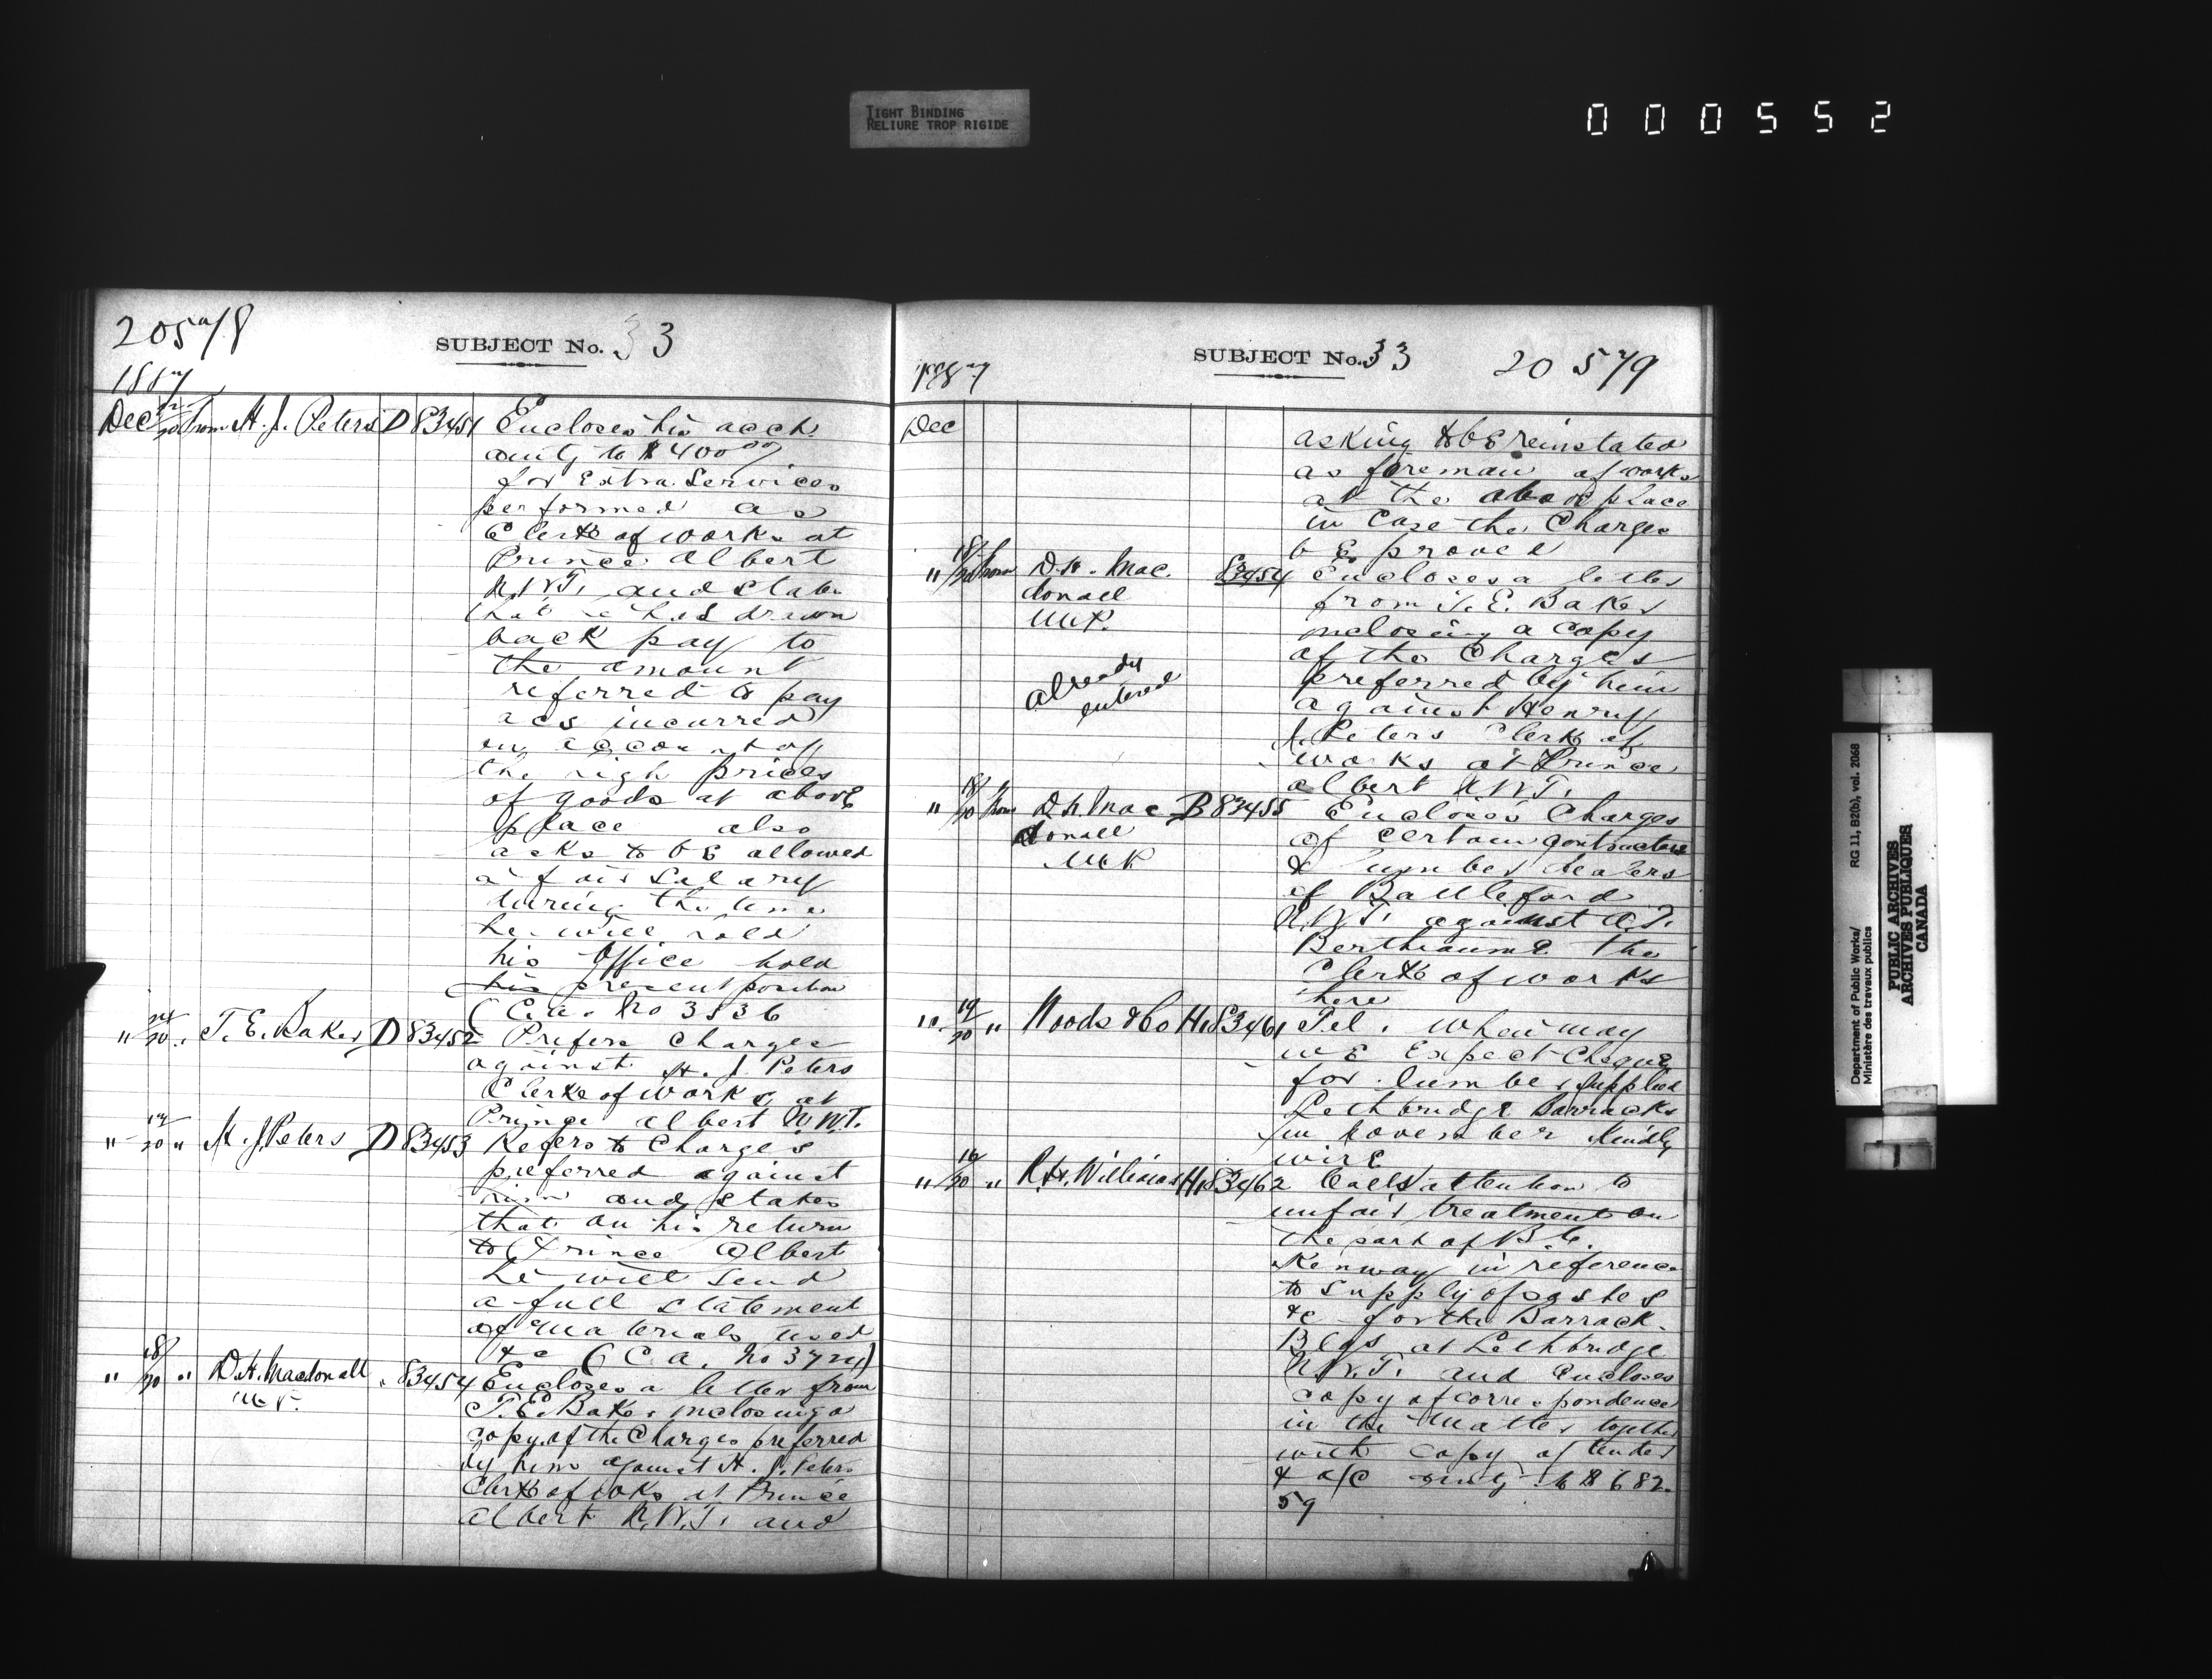 TIGHT BINDING
RELIURE TROP RIGIDE
000552
20578
SUBJECT No. 33
1887
Dec 20 from H. J. Peters D 83451 Encloses his acct.
amtg to $400 00/
for Extra Services
performed as
Clerk of works at
Prince Albert
N.W.T. and states
that he has drawn
back pay to
the amount
referred to pay
acs incurred
on account of
the high prices
of goods at above
place also
asks to be allowed
a fair Salary
during the time
he will hold
his Office hold
his present position
(C.a. No 3836
" 20 " T. E. Baker D 83452 Prefers Charges
against H. J. Peters
Clerk of works at
Prince Albert N.W.T.
" 17/20 " H. J. Peters D 83453 Refers to Charges
preferred against
him and states
that on his return
to Prince Albert
he will send
a full statement
of materials used
&c (C.a. No 3724)
" 18/20 " D. H. Macdonall " 83454 Encloses a letter from
M.P. T. E. Baker inclosing a
copy of the Charges preferred
by him against H. J. Peters
Clerk of wks at Prince
Albert N.W.T. and
SUBJECT No. 33
20 579
1887
Dec
asking to be reinstated
as foreman of works
at the above place
in Case the Charges
be proved
" 18/20 from D. H. Mac. 83454 Encloses a letter
donall from T. E. Baker
M.P. inclosing a copy
of the Charges
already preferred by him
entered against Henry
J. Peters Clerk of
works at Prince
Albert N.W.T.
" 18/20 from D. H. Mac B 83455 Encloses Charges
donall of certain contractors
M.P. & lumber dealers
of Battleford
N.W.T. against A. T.
Berthiaume the
Clerk of works
there
" 19/20 " Woods & Co H1 83461 Tel. When may
we Expect Cheque
for lumber supplied
Lethbridge Barracks
in November Kindly
wire
" 16/20 " R. H. Williams H1 83462 Calls attention to
unfair treatment on
the part of B. C.
Kenway in reference
to supply of sashes
&c for the Barrack
Blgs at Lethbridge
N.W.T. and Encloses
copy of correspondence
in the matter together
with copy of tender
& a/c amtg to $ 682.
59
Department of Public Works/
Ministère des travaux publics
RG 11, B2(b), vol. 2068
PUBLIC ARCHIVES
ARCHIVES PUBLIQUES
CANADA